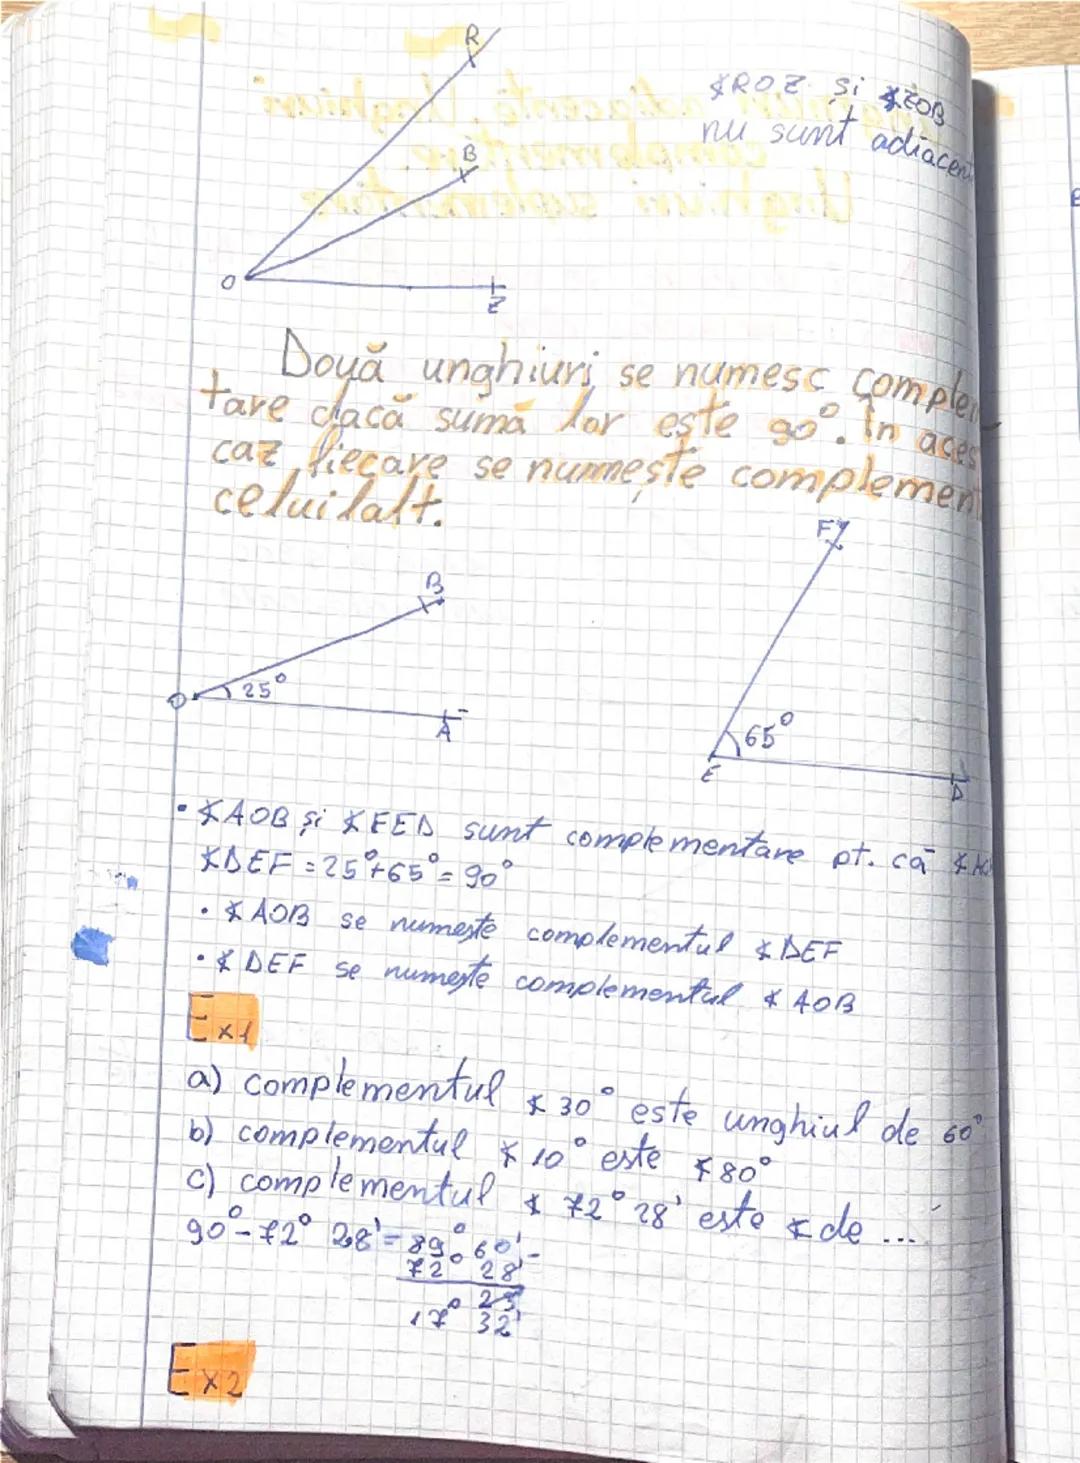 R
∢ROZ și ∢ZOB
nu sunt adiacen
B
O
Z
Două unghiuri se numesc comple
tare dacă sumă lor este 90°. În aces
caz, fiecare se numește complemen
celuilalt.
F
B
25°
O
A
65°
E
D
• ∢AOB și ∢FED sunt complementare pt. că ∢AO
∢DEF = 25°+65° = 90°
• ∢AOB se numește complementul ∢DEF
• ∢DEF se numește complementul ∢AOB
Ex1
a) complementul ∢30° este unghiul de 60°
b) complementul ∢10° este ∢80°
c) complementul ∢72°28' este ∢ de ...
90°-72° 28' = 89° 60' -
72° 28'
17° 32'
Ex2